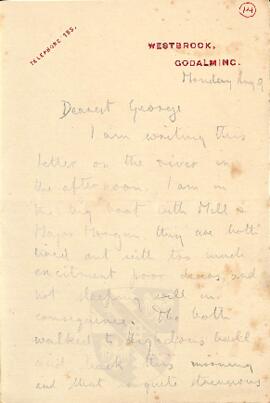 14
TELEPHONE 189.
WESTBROOK,
GODALMING.
Monday Aug 9
Dearest George
I am writing this
letter on the river in
the afternoon. I am in
the big boat with Mill &
Major Morgan they are both
tired out with too much
excitment poor dears, and
not sleeping well in
consequence. The both
walked to Hightown
and back this morning
and that is quite strenuous